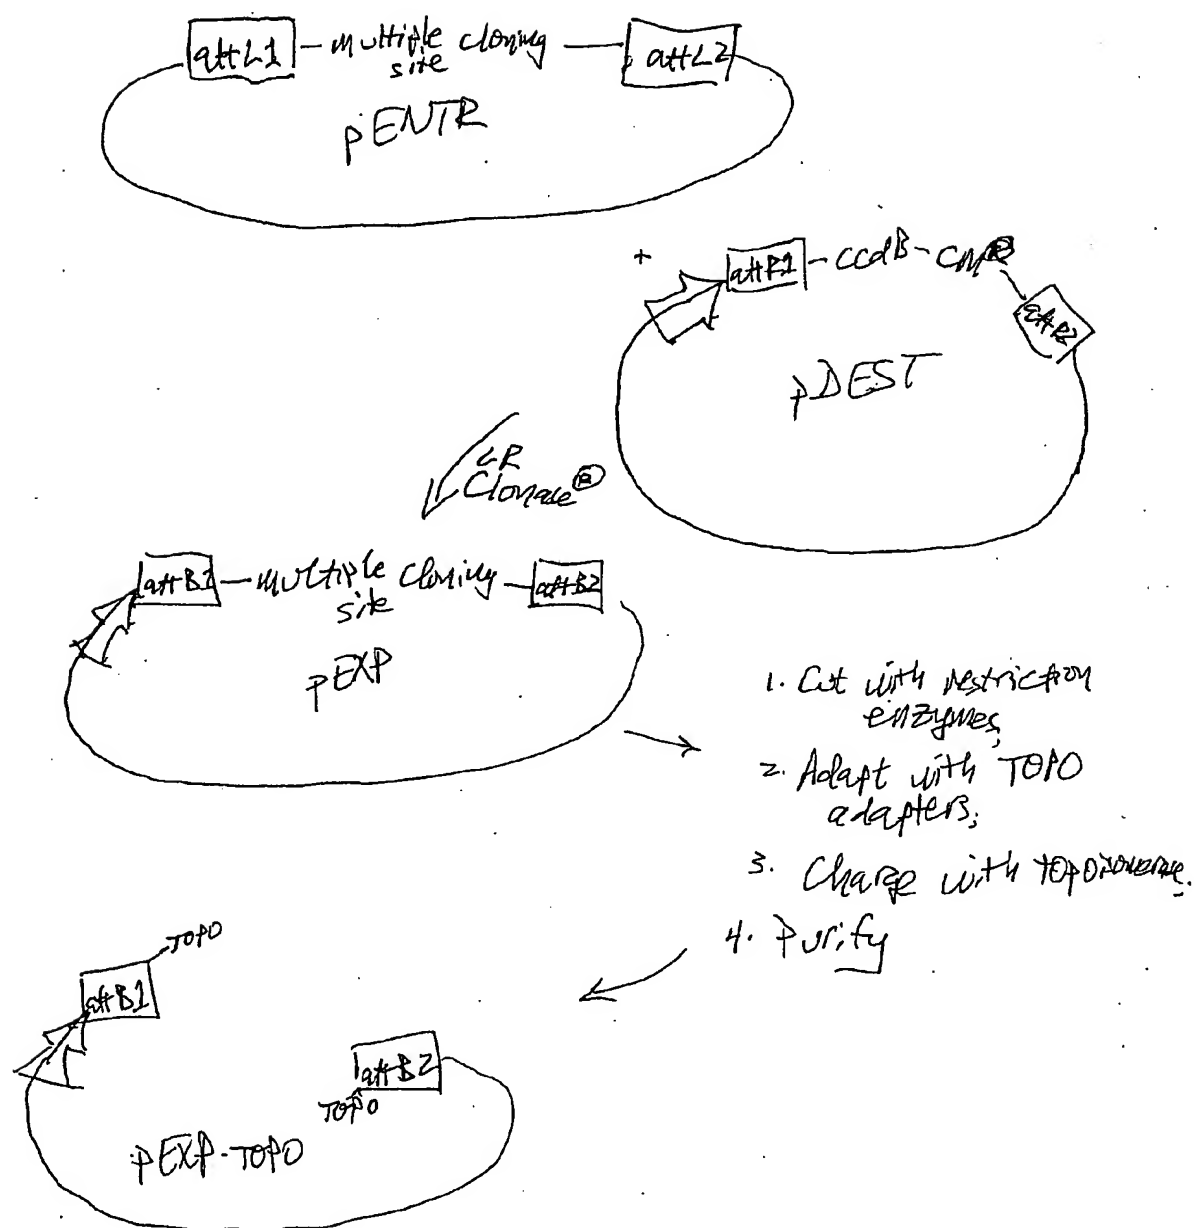 attL1 - multiple cloning — attL2
site
pENTR
+
attR1 - ccdB - CmR
attR2
pDEST
LR
Clonase®
attB1 - multiple cloning - attB2
site
pEXP
1. Cut with restriction
enzymes;
2. Adapt with TOPO
adapters;
3. Charge with topoisomerase.
4. Purify
TOPO
attB1
attB2
TOPO
pEXP-TOPO